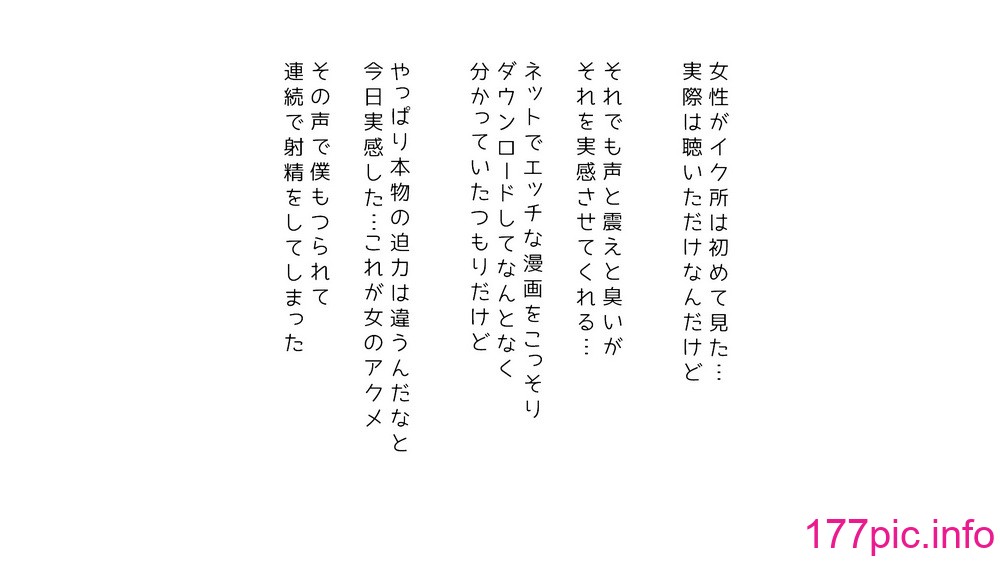 女性がイク所は初めて見た…
実際は聴いただけなんだけど
それでも声と震えと臭いが
それを実感させてくれる…
ネットでエッチな漫画をこっそり
ダウンロードしてなんとなく
分かっていたつもりだけど
やっぱり本物の迫力は違うんだなと
今日実感した…これが女のアクメ
その声で僕もつられて
連続で射精をしてしまった
177pic.info